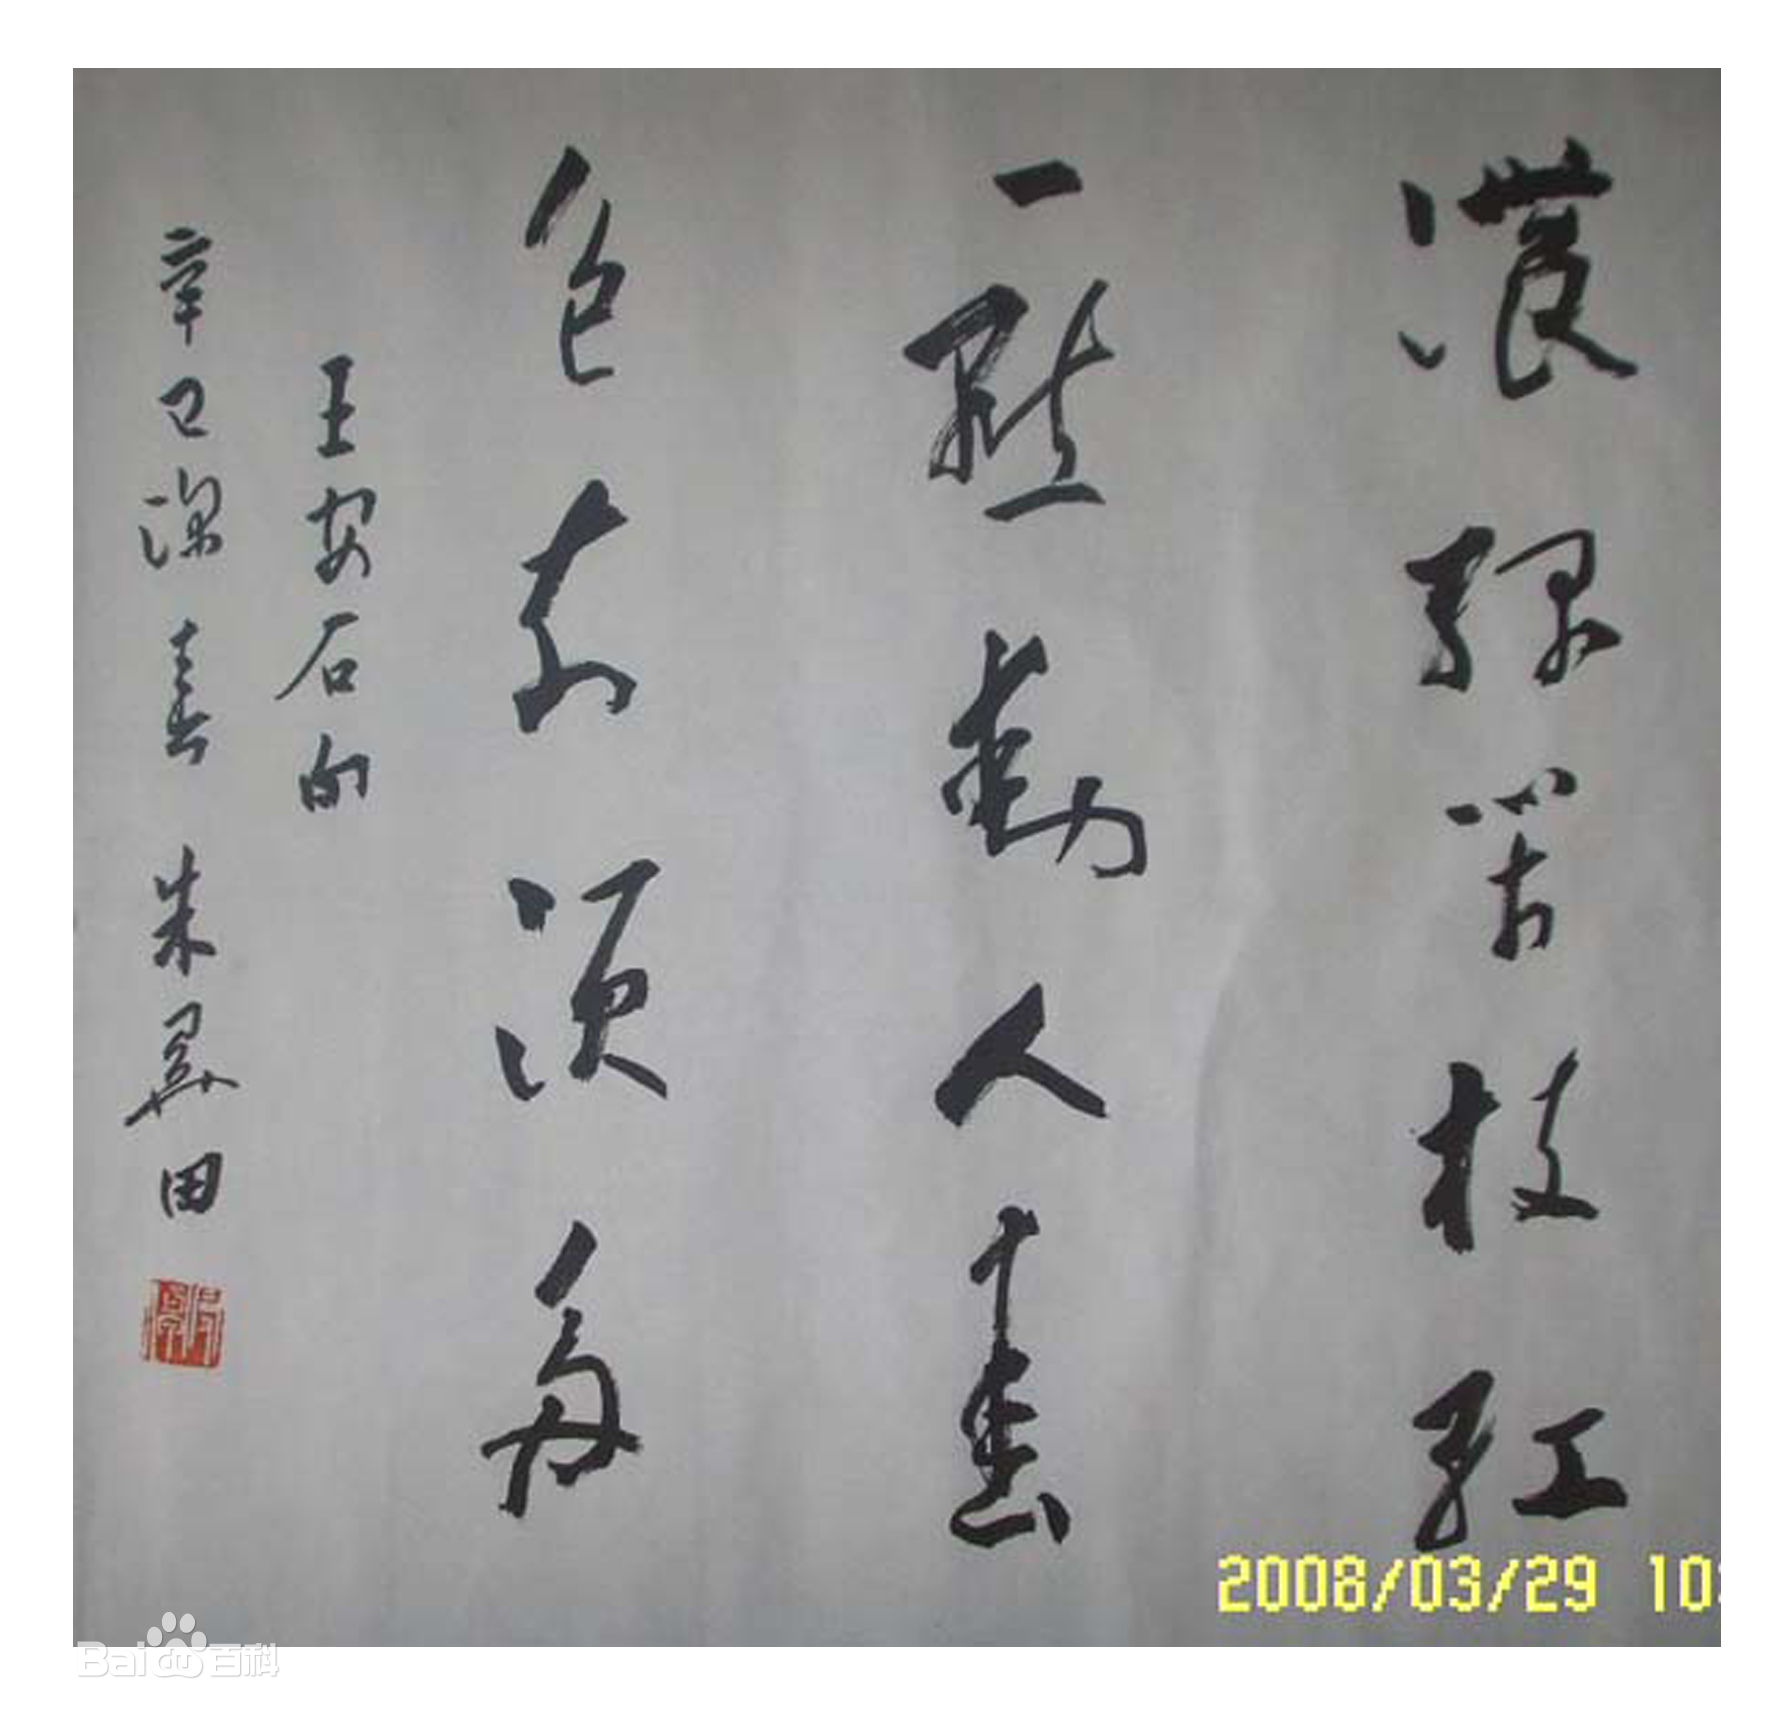 濃綠萬枝紅
一點動人春
色不須多
王安石句
辛巳深春 朱 田
2008/03/29 10:
Bai 百科